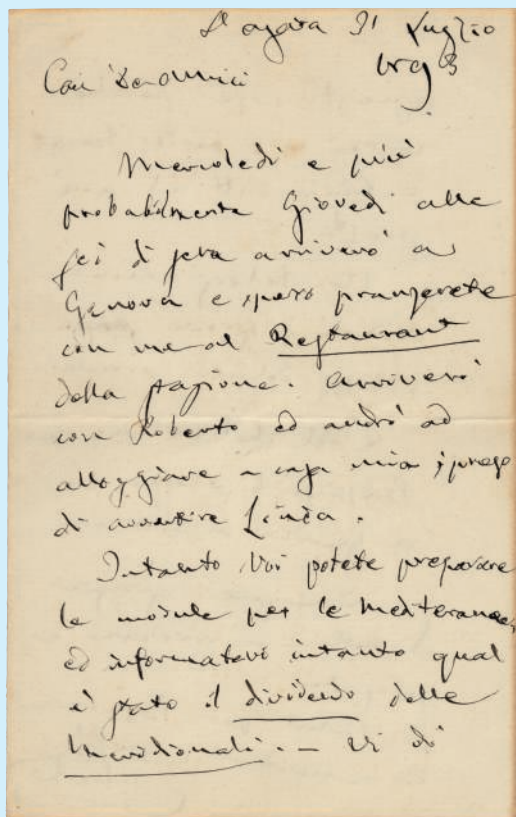 S. Agata 31 Luglio
1893
Caro DeAmicis
Mercoledì e più
probabilmente Giovedì alle
sei di sera arriverò a
Genova e spero pranzerete
con me al Restaurant
della stazione. Arriverò
con Roberto ed andrò ad
alloggiare a casa mia; prego
di avvertire
Intanto Voi potete preparare
le module per le Mediteranee
ed informatevi intanto qual
è stato il dividendo delle
Meridionali. — Vi di